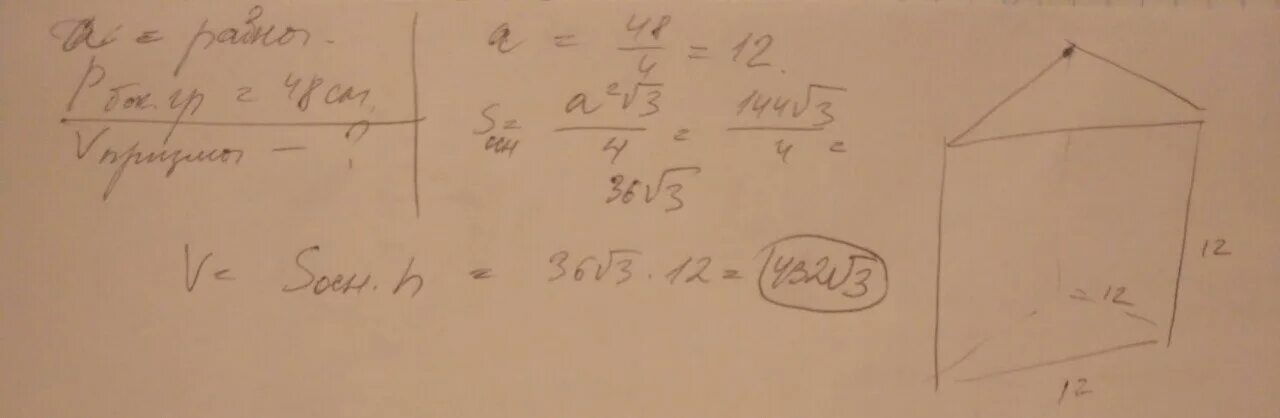 a = равны.
P бок.гр = 48 см
V призмы — ?
a = 48/4 = 12.
S осн = a²√3/4 = 144√3/4 =
36√3
V = Sосн. h = 36√3 · 12 = 432√3
12
= 12
12